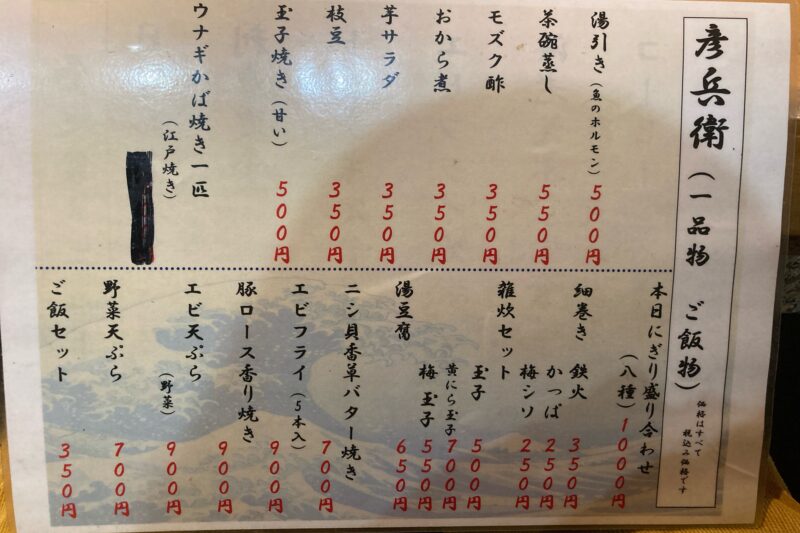 彦兵衛(一品物 ご飯物)
価格はすべて
税込み価格です
湯引き(魚のホルモン) 500円
茶碗蒸し 550円
モズク酢 350円
おから煮 350円
芋サラダ 350円
枝豆 350円
玉子焼き(甘い) 500円
ウナギかば焼き一匹
(江戸焼き)
本日にぎり盛り合わせ
(八種) 1000円
細巻き 鉄火 350円
かっぱ 250円
梅シソ 250円
雑炊セット
玉子 500円
黄にら玉子 700円
梅玉子 550円
湯豆腐 650円
ニシ貝香草バター焼き 700円
エビフライ(5本入) 900円
豚ロース香り焼き 900円
エビ天ぷら(野菜) 900円
野菜天ぷら 700円
ご飯セット 350円